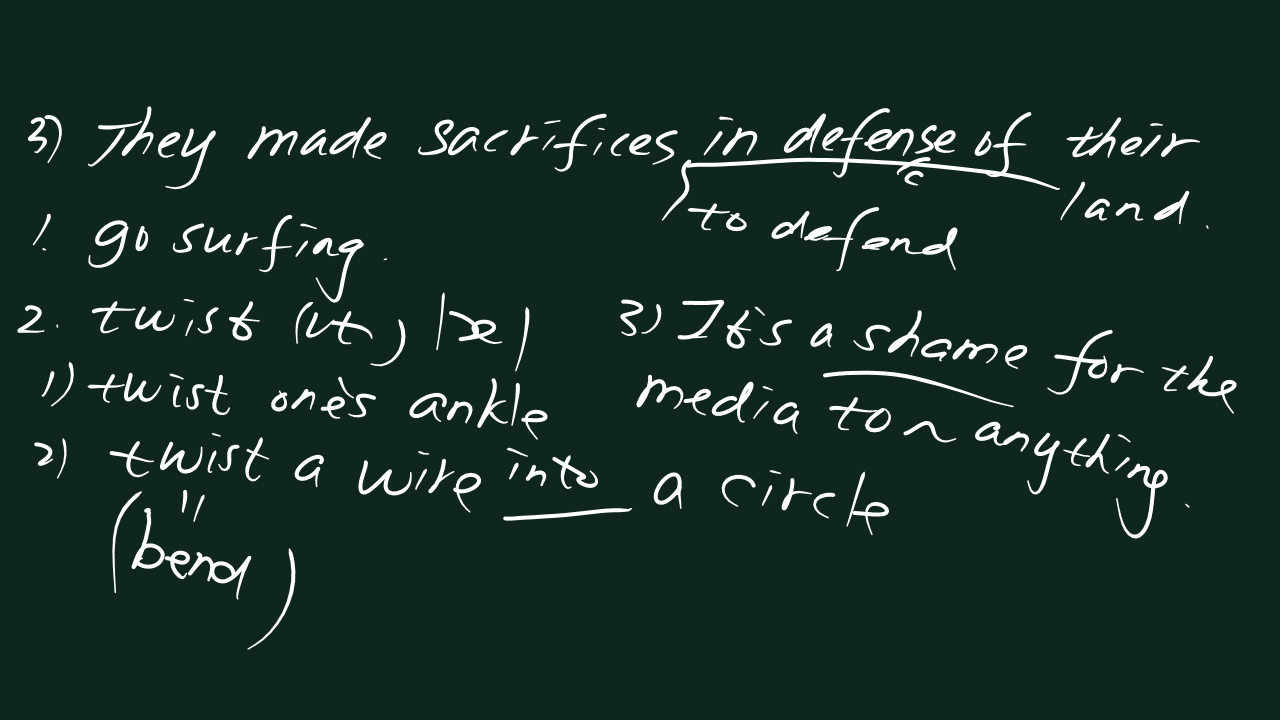 3) They made sacrifices in defense of their
c
land.
to defend
1. go surfing.
2. twist (vt)
1) twist one's ankle
2) twist a wire into a circle
"
(bend)
3) It's a shame for the
media to ~ anything.